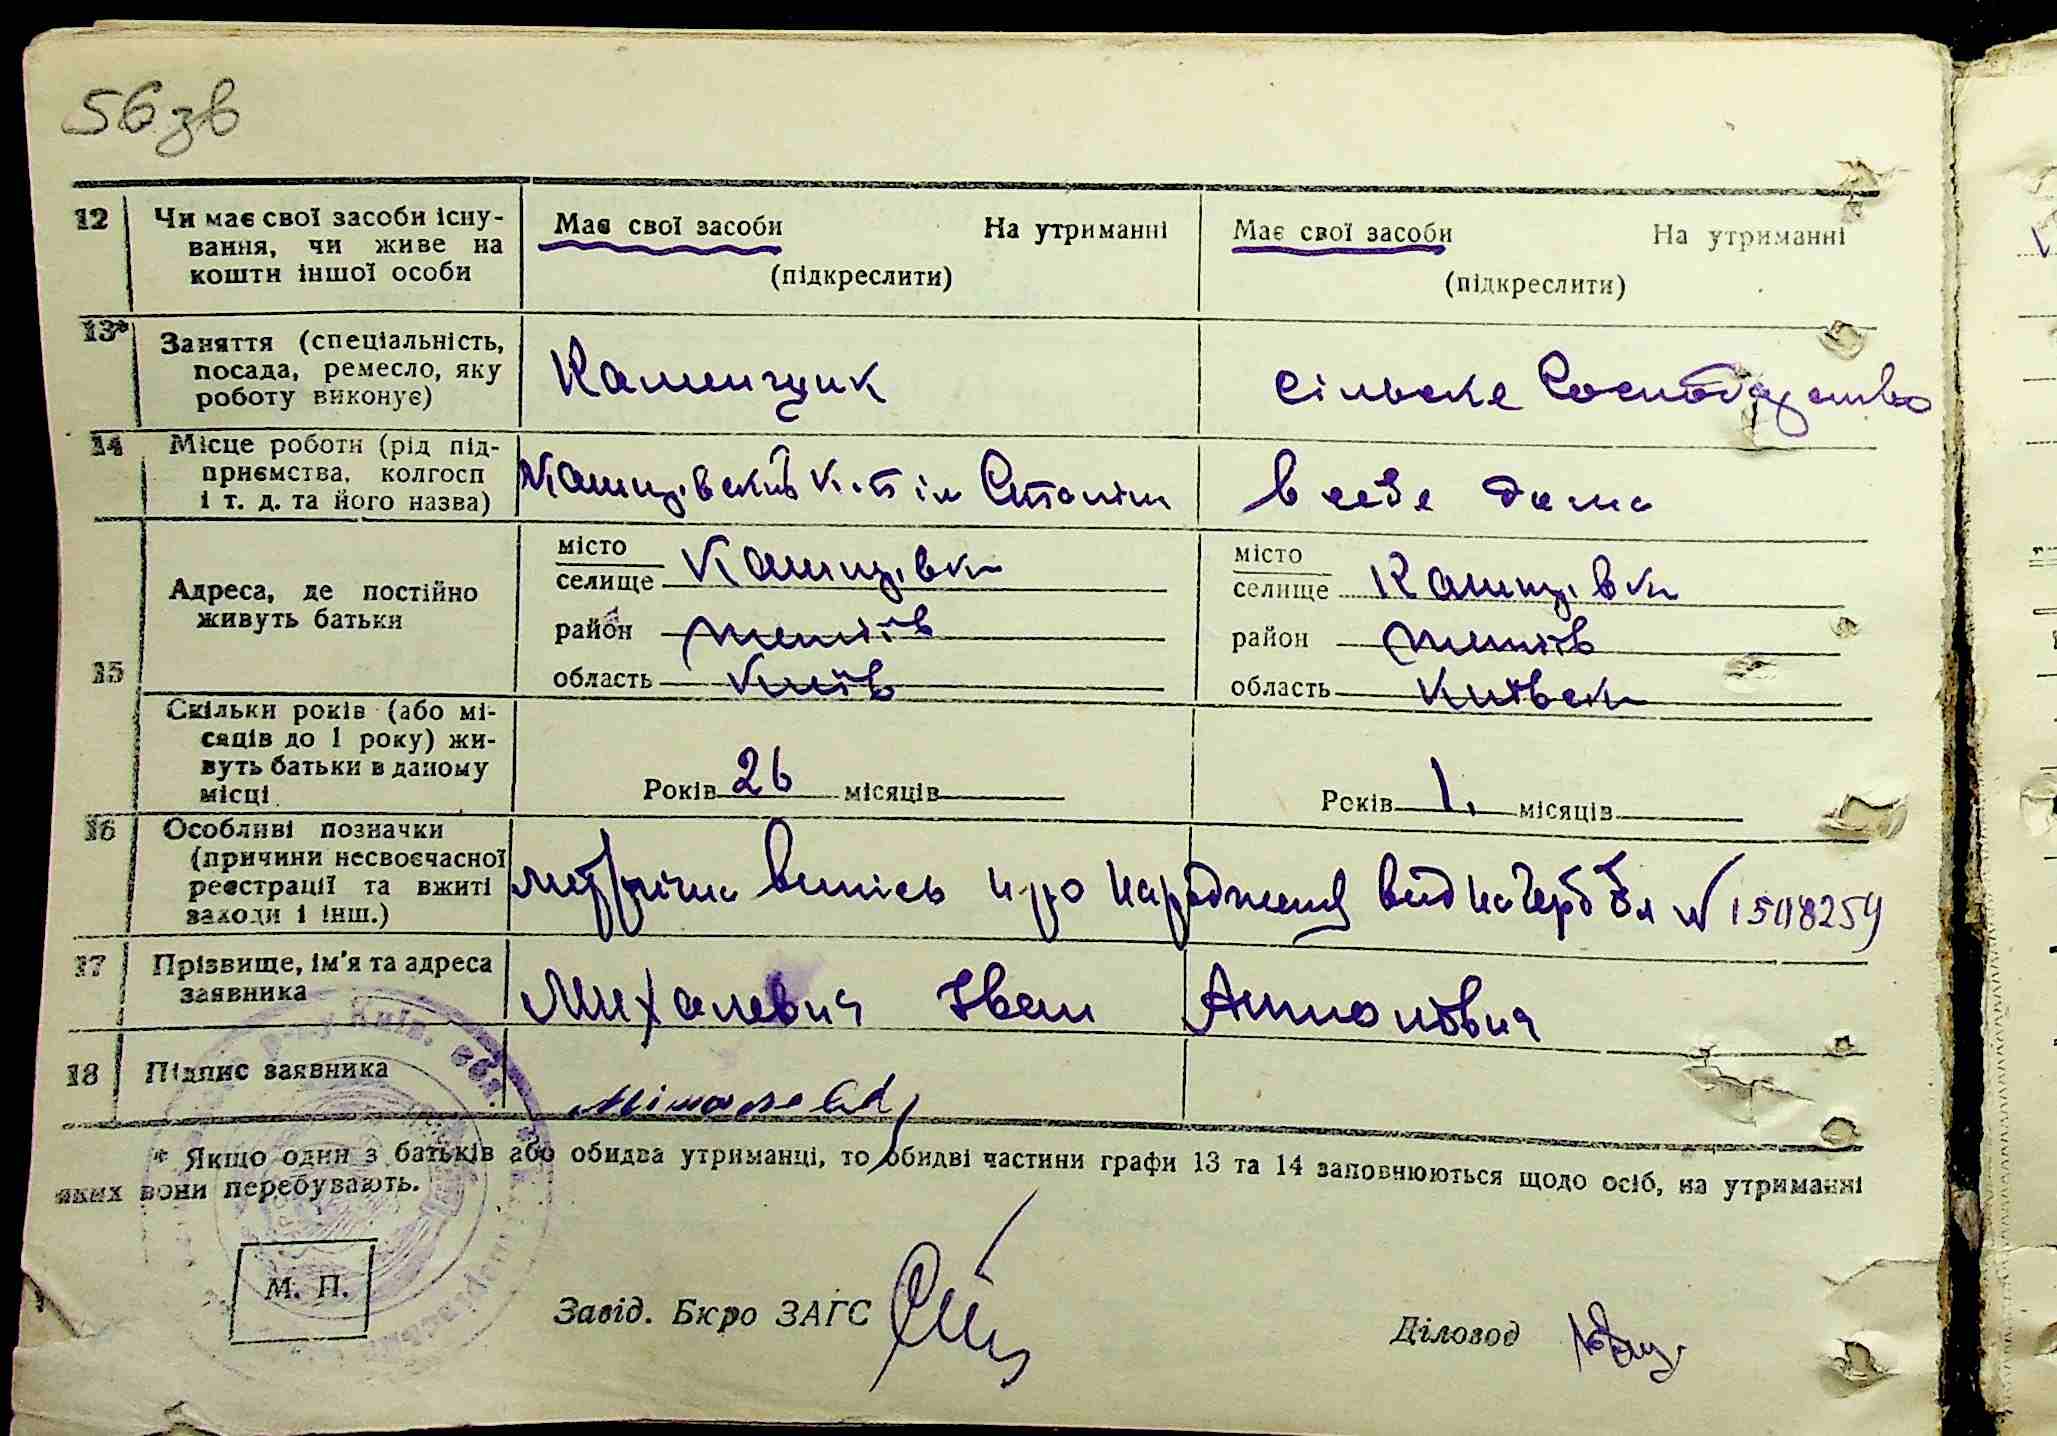 56зв
12 Чи має свої засоби існу- Має свої засоби На утриманні Має свої засоби На утриманні
вання, чи живе на
кошти іншої особи (підкреслити) (підкреслити)
13* Заняття (спеціальність,
посада, ремесло, яку Каменщик сільске Господарство
роботу виконує)
14 Місце роботи (рід під-
приємства, колгосп в себе дома
і т. д. та його назва)
місто місто
селище селище
15 Адреса, де постійно
живуть батьки район район
область Київ область Київськ
Скільки років (або мі-
сяців до 1 року) жи-
вуть батьки в даному Років 26 місяців Років 1. місяців
місці
16 Особливі позначки
(причини несвоєчасної
реєстрації та вжиті випісь про народження № 1508259
заходи і інш.)
17 Прізвище, ім'я та адреса Михалевич Іван Антонович
заявника
18 Підпис заявника
* Якщо один з батьків або обидва утриманці, то обидві частини графи 13 та 14 заповнюються щодо осіб, на утриманні
яких вони перебувають.
М. П.
Завід. Бюро ЗАГС Діловод